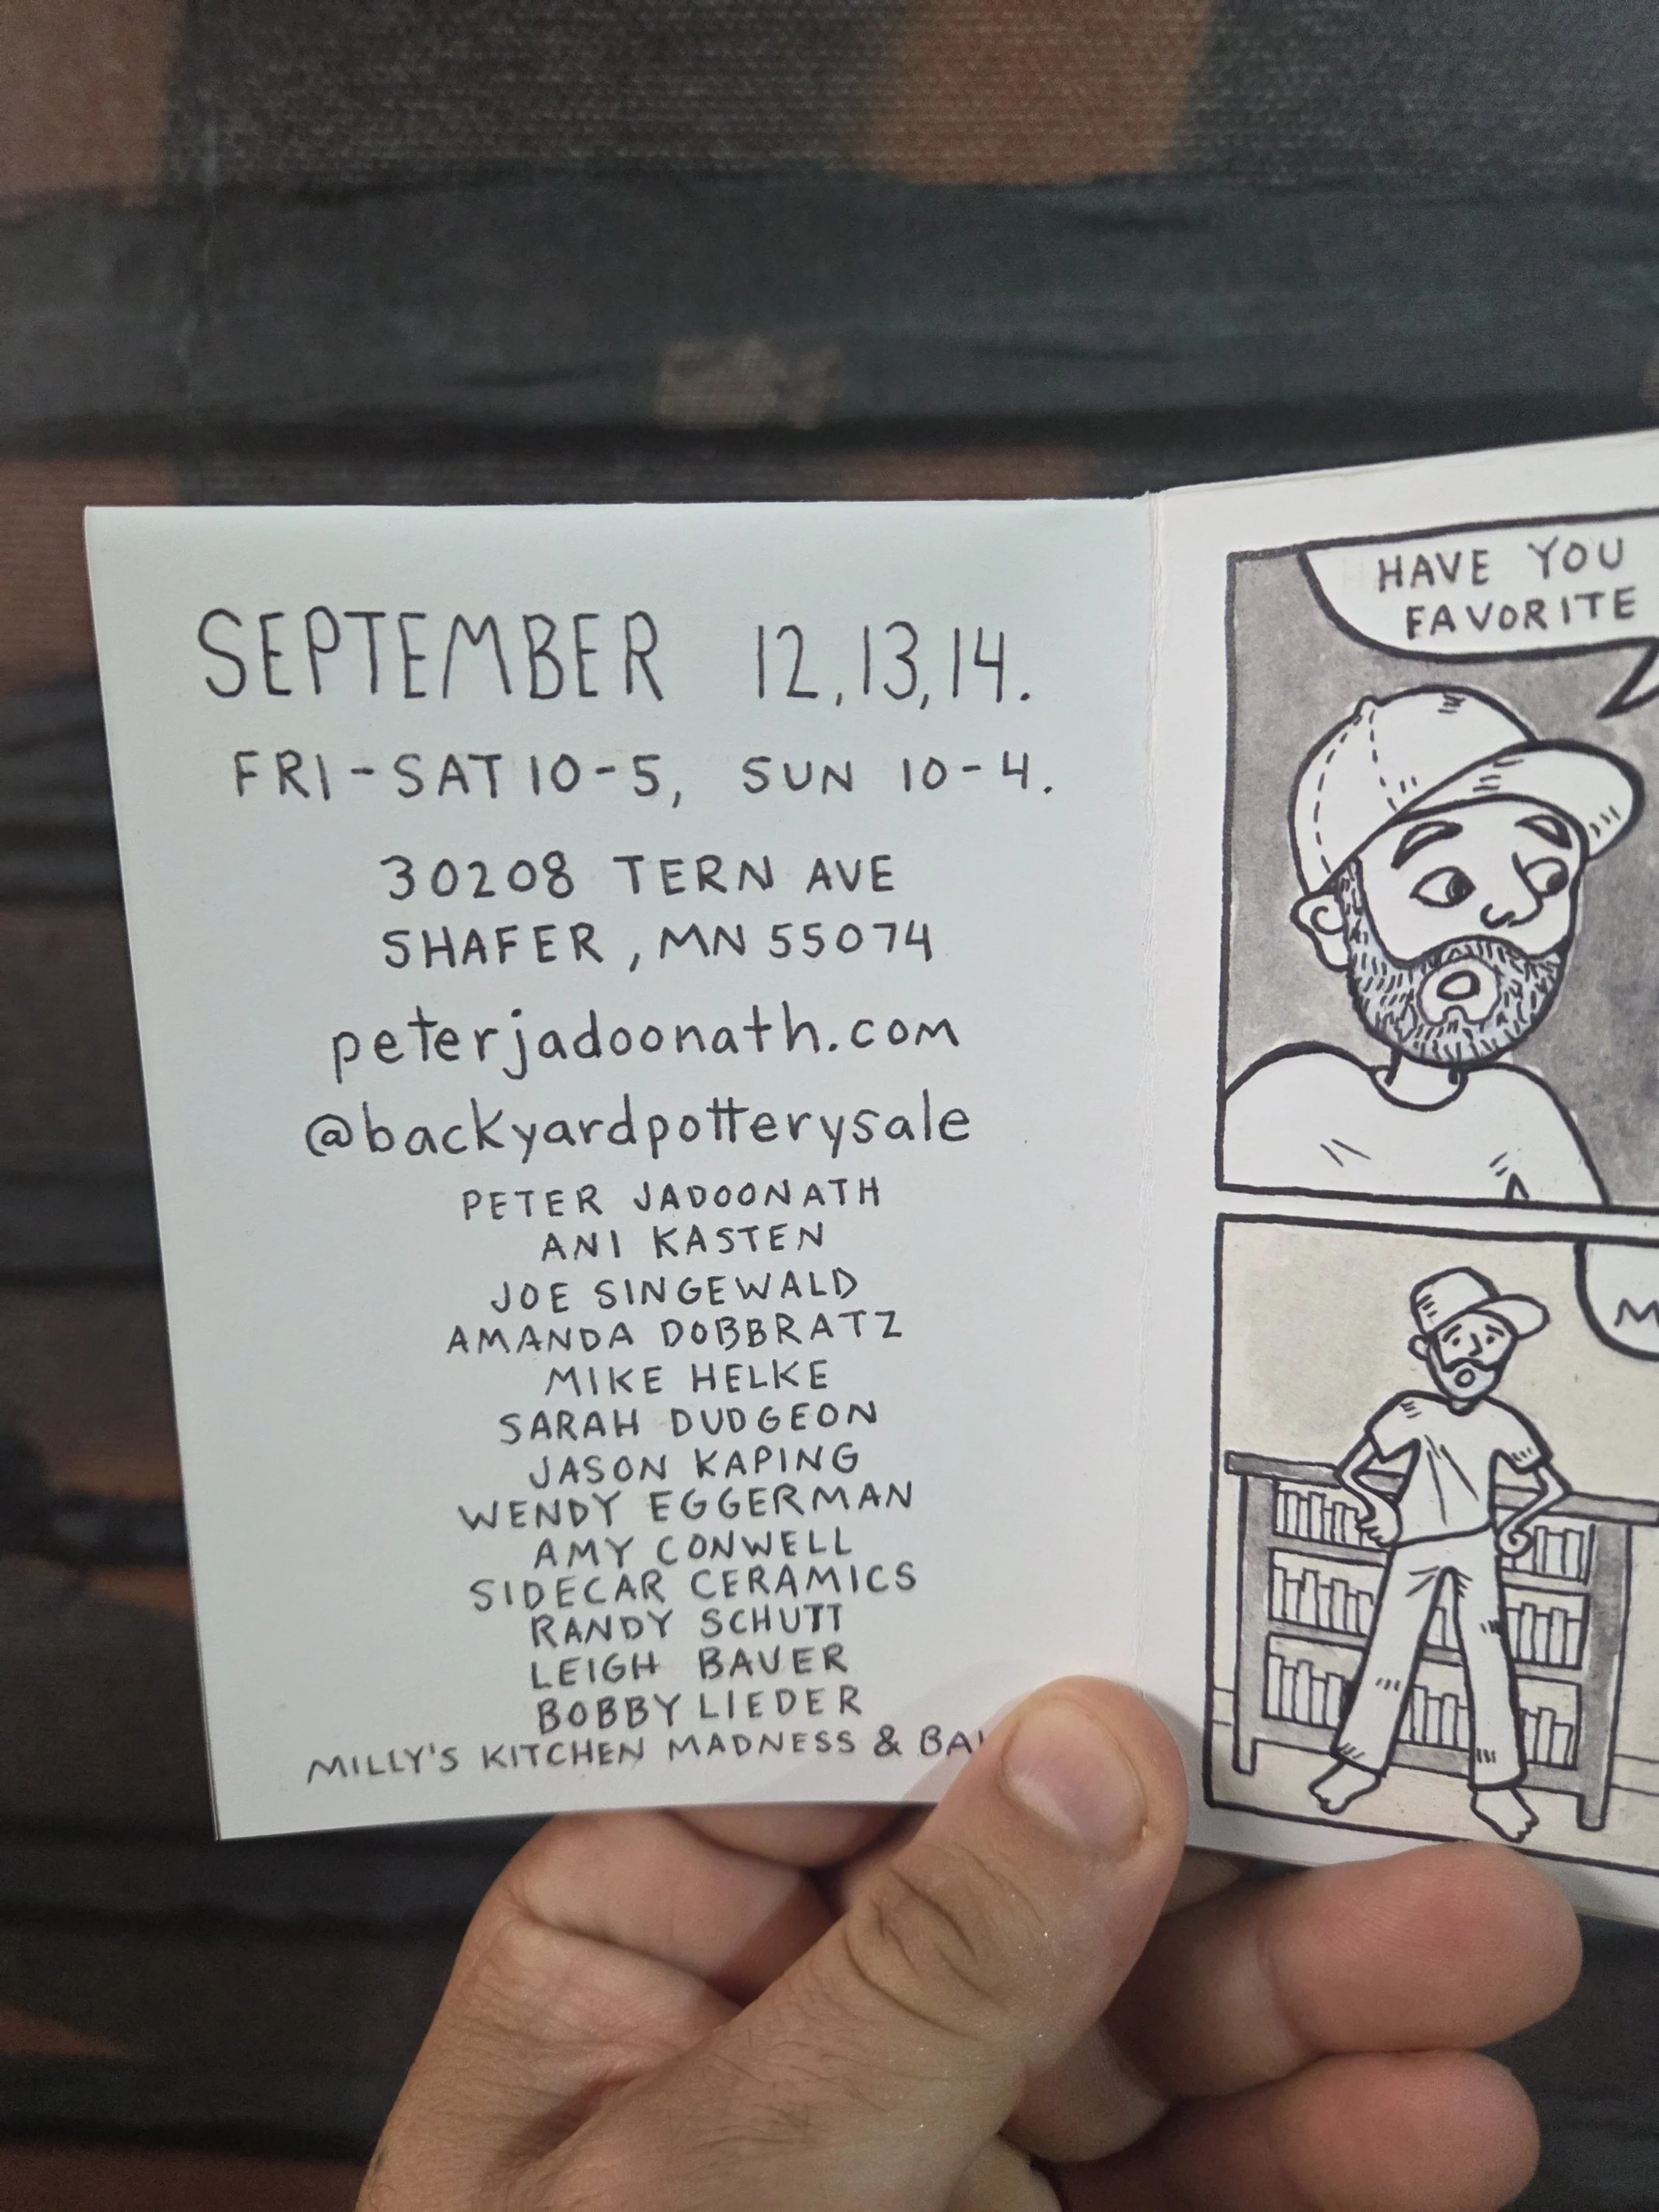 SEPTEMBER 12, 13, 14.
FRI-SAT 10-5, SUN 10-4.
30208 TERN AVE
SHAFER, MN 55074
peterjadoonath.com
@backyardpotterysale
PETER JADOONATH
ANI KASTEN
JOE SINGEWALD
AMANDA DOBBRATZ
MIKE HELKE
SARAH DUDGEON
JASON KAPING
WENDY EGGERMAN
AMY CONWELL
SIDECAR CERAMICS
RANDY SCHUTT
LEIGH BAUER
BOBBY LIEDER
MILLY'S KITCHEN MADNESS &
HAVE YOU
FAVORITE